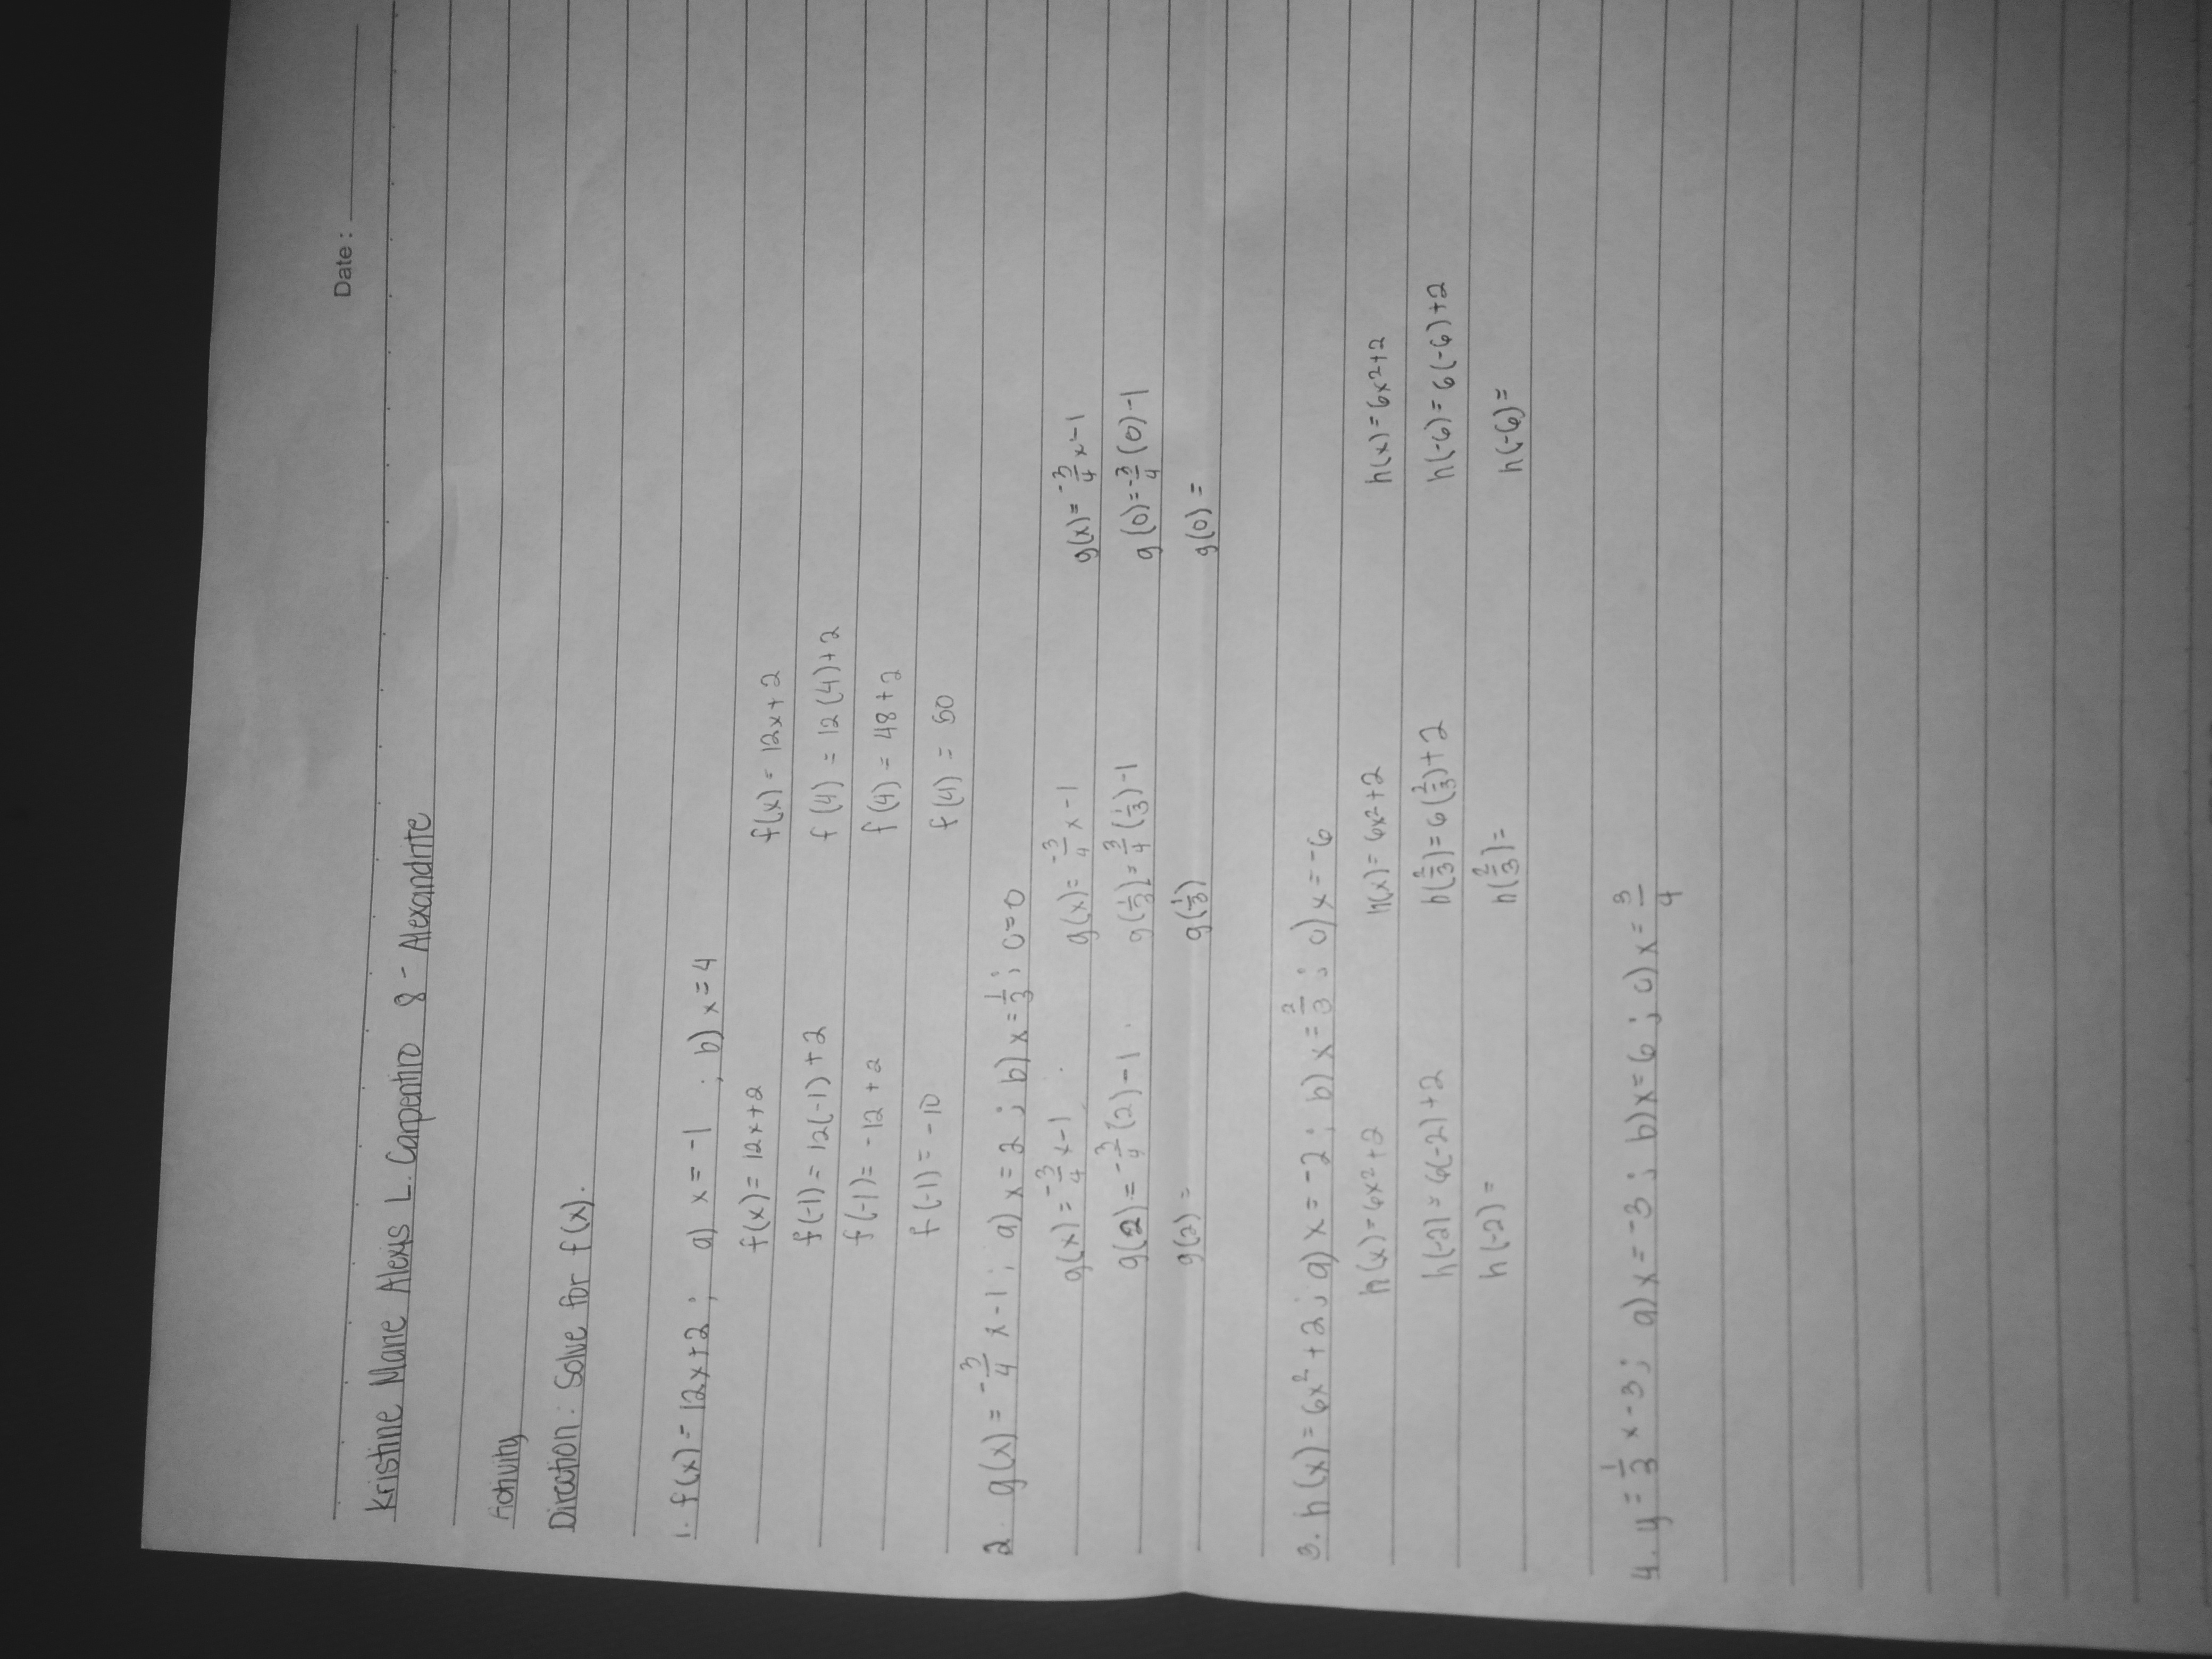 Date:
Kristine Marie Alexis L. Carpentiro 8 - Alexandrite
Activity
Direction: Solve for f(x).
1. f(x) = 12x+2; a) x = -1 ; b) x = 4
f(x) = 12x+2 f(x) = 12x+2
f(-1) = 12(-1) +2 f(4) = 12(4)+2
f(-1) = -12 +2 f(4) = 48+2
f(-1) = -10 f(4) = 50
2. g(x) = -3/4 x-1; a) x = 2 ; b) x = 1/3; c=0
g(x) = -3/4 x-1 g(x) = -3/4 x-1 g(x) = -3/4 x-1
g(2) = -3/4 (2)-1 g(1/3) = 3/4 (1/3)-1 g(0) = -3/4 (0)-1
g(2) = g(1/3) g(0) =
3. h(x) = 6x²+2; a) x = -2; b) x = 2/3; c) x = -6
h(x) = 6x²+2 h(x) = 6x²+2 h(x) = 6x²+2
h(-2) = 6(-2)+2 h(2/3) = 6(2/3)+2 h(-6) = 6(-6)+2
h(-2) = h(2/3) = h(-6) =
4. y = 1/3 x-3; a) x = -3; b) x = 6; c) x = 3/4